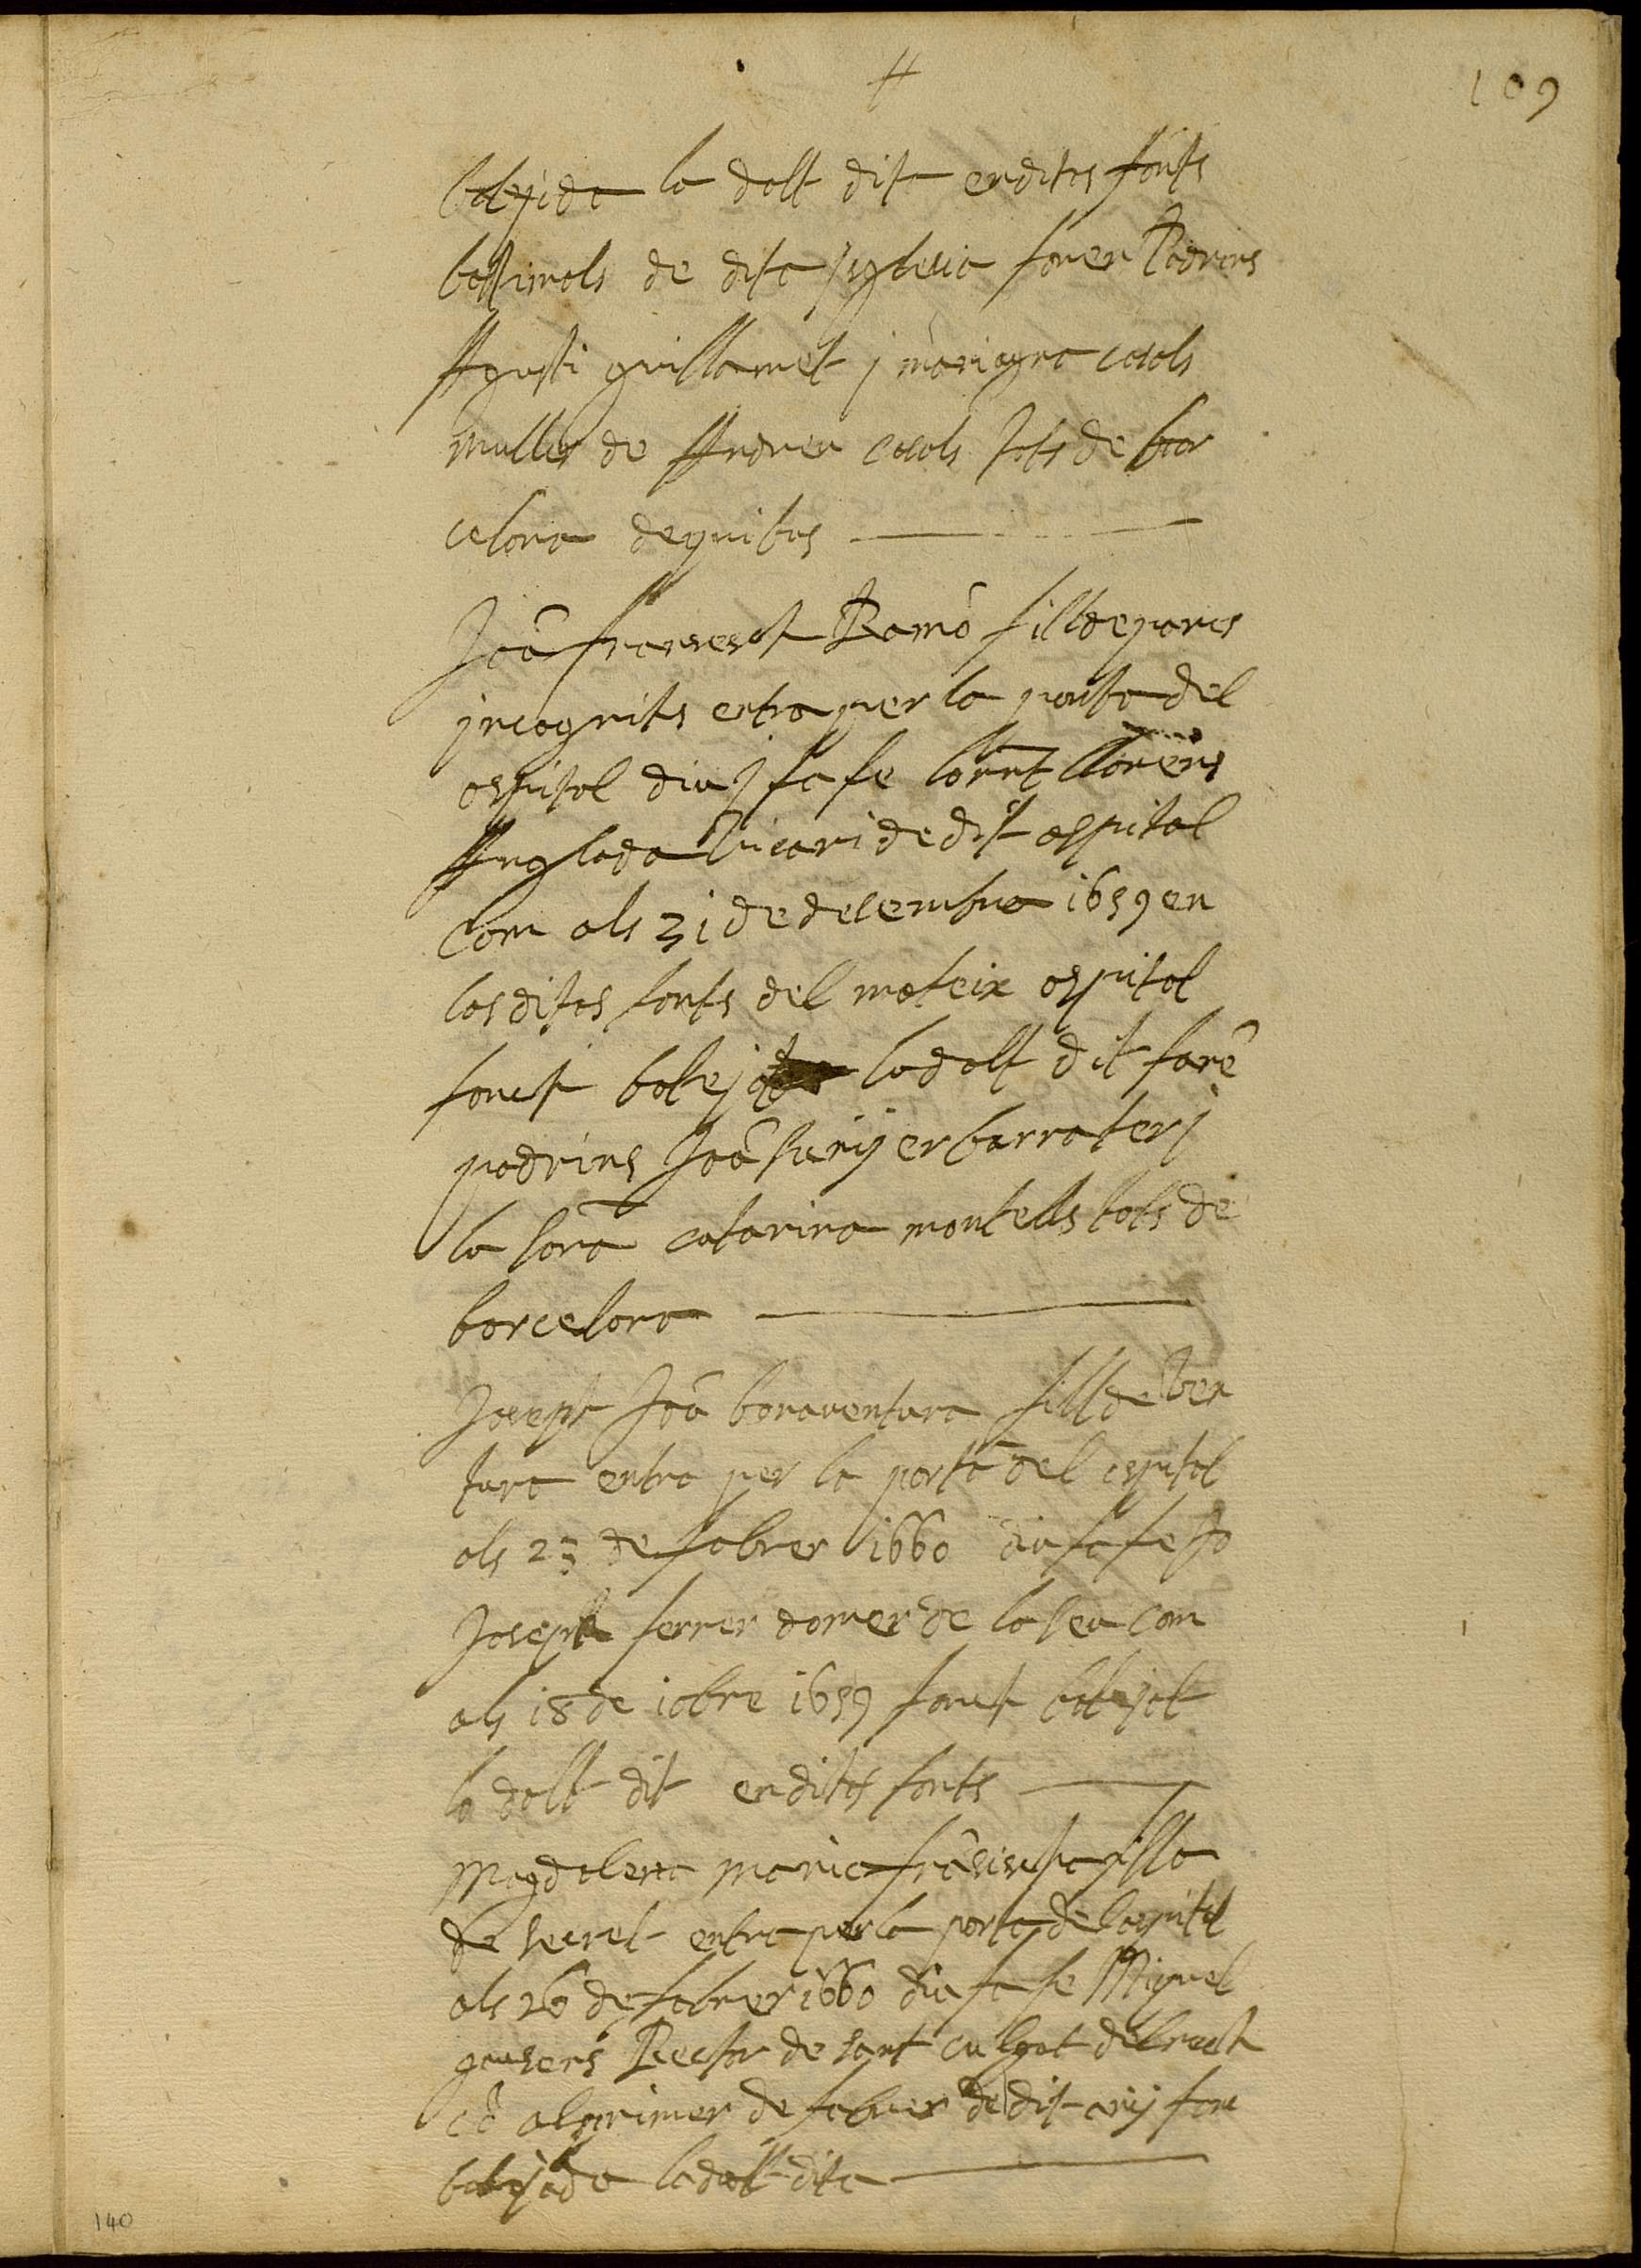 109
batejida la dalt dita en dites fonts
batismals de dita yglesia foren Padrins
Agusti guillamet j mariagna casols
muller de Andreu casols tots de bar
celona de quibus
Joã fransesch Ramõ fill de pares
jncognits entra per la porta del
ospital diu j fa fe Llorens
Anglada Vicari de dit ospital
Com als 31 de desembre 1659 en
las ditas fonts del mateix ospital
fonch batejat lo dalt dit forẽ
padrins Joã suñyer barrater j
la sorã catarina montells tots de
barcelona
Joseph Joã bonaventura fill de Ven
tura entra per la porta del ospital
als 23 de fabrer 1660 diu fa fe Jo
Joseph ferrer domer de la seu com
als 18 de 10bre 1659 fonch batejat
lo dalt dit en dites fonts
Magdalena maria frãsischa filla
de secret entra per la porta de lospital
als 26 de fabrer 1660 diu fa fe Miquel
gausens Rector de sant culgat del rech
cõ al primer de fabrer de dit añy fou
batejada la dalt dita
140